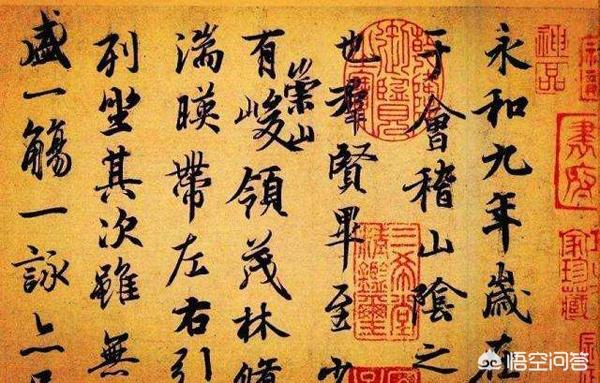 神品
永和九年歲在
于會稽山陰之
也羣賢畢至少
有崇山峻領茂林脩
湍暎帶左右引
列坐其次雖無
盛一觴一詠亦足
三希堂
悟空问答